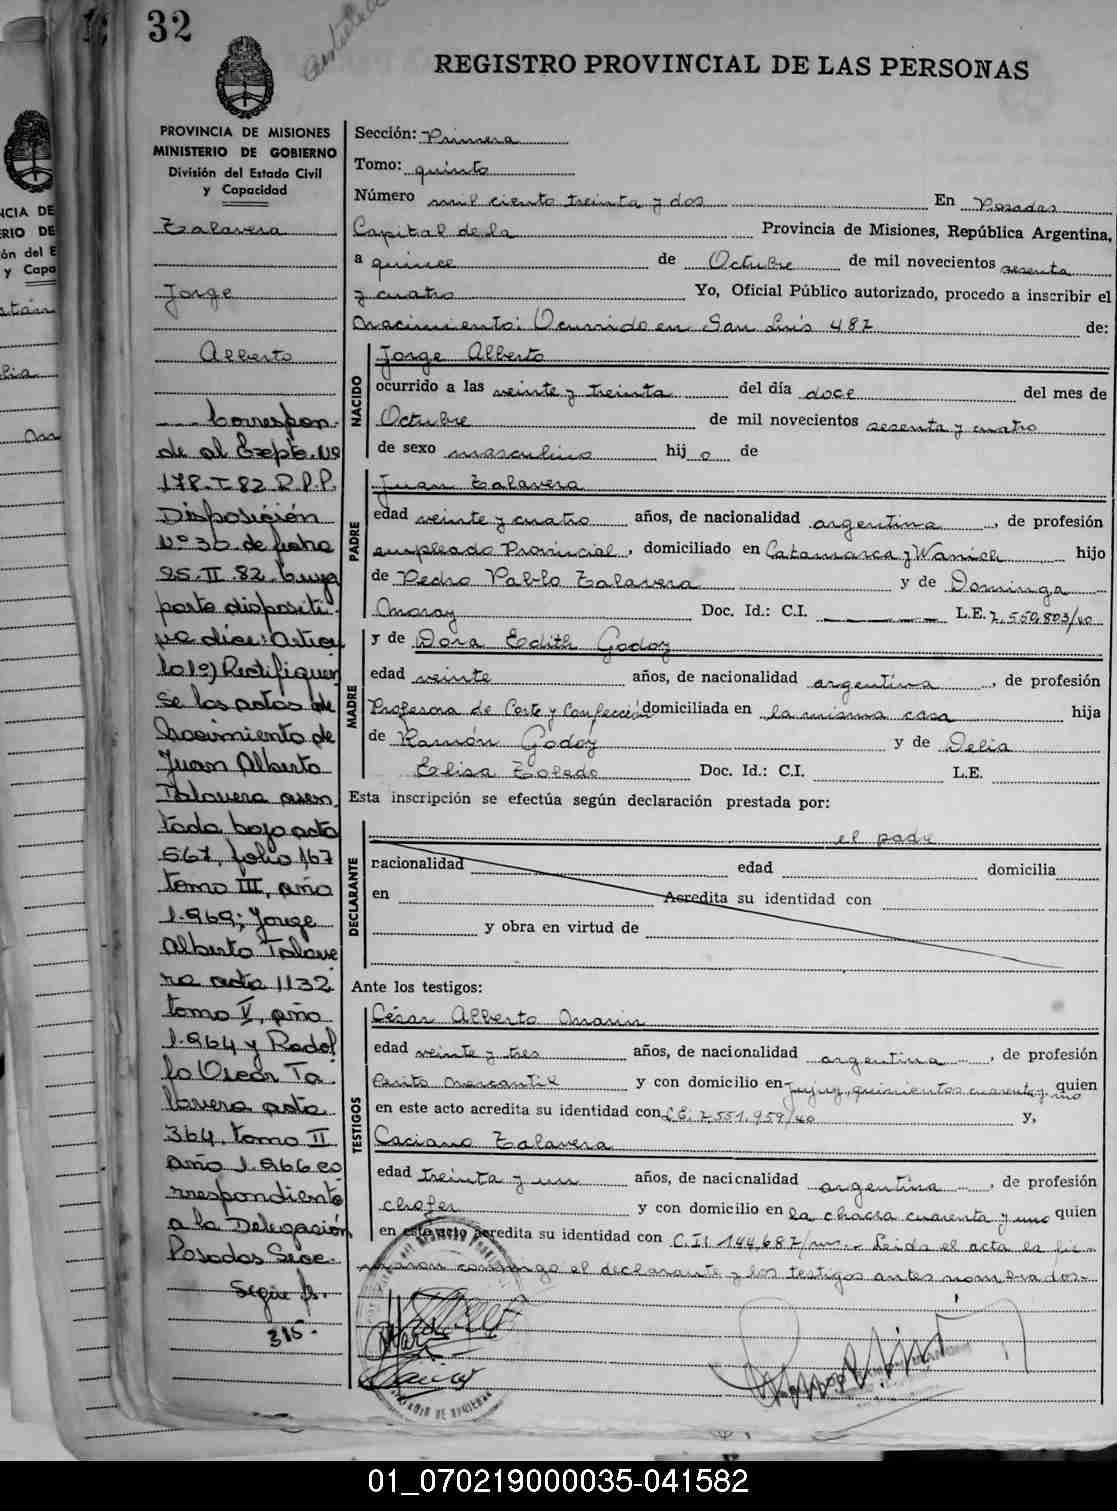 32
REGISTRO PROVINCIAL DE LAS PERSONAS
PROVINCIA DE MISIONES
MINISTERIO DE GOBIERNO
División del Estado Civil
y Capacidad
Talavera
Jorge
Alberto
Correspon-
de al Expte. No
178-T-82 R.P.P.
Disposición
Nº 36 de fecha
25.II.82. Cuya
parte dispositi-
va dice: Artícu
lo 1º) Rectifiquen
se las actas de
Nacimiento de
Juan Alberto
Talavera asen
tada bajo acta
567, folio 167
tomo III, año
1.969; Jorge
Alberto Talave
ra acta 1132
tomo V, año
1.964 y Rodol
fo Oscar Ta
lavera acta
364, tomo II
año 1.966 co
rrespondiente
a la Delegación
Posadas Secc.
Sigue fs.
315.
Sección: Primera
Tomo: quinto
Número mil ciento treinta y dos En Posadas
Capital de la Provincia de Misiones, República Argentina,
a quince de Octubre de mil novecientos sesenta
y cuatro Yo, Oficial Público autorizado, procedo a inscribir el
Nacimiento: Ocurrido en San Luis 487 de:
NACIDO
Jorge Alberto
ocurrido a las veinte y treinta del día doce del mes de
Octubre de mil novecientos sesenta y cuatro
de sexo masculino hijo de
PADRE
Juan Talavera
edad veinte y cuatro años, de nacionalidad argentina, de profesión
empleado Provincial, domiciliado en Catamarca y Wanich hijo
de Pedro Pablo Talavera y de Dominga
Moray Doc. Id.: C.I. L.E. 7.550.803/
MADRE
y de Dora Edith Godoy
edad veinte años, de nacionalidad argentina, de profesión
Profesora de Corte y Confección domiciliada en la misma casa hija
de Ramón Godoy y de Delia
Elisa Toledo Doc. Id.: C.I. L.E.
Esta inscripción se efectúa según declaración prestada por:
DECLARANTE
el padre
nacionalidad edad domicilia
en Acredita su identidad con
y obra en virtud de
Ante los testigos:
TESTIGOS
César Alberto Marin
edad veinte y tres años, de nacionalidad argentina, de profesión
Perito Mercantil y con domicilio en Jujuy, quinientos cuarenta y uno quien
en este acto acredita su identidad con L.E. 7.551.959/ y,
Caciano Talavera
edad treinta y un años, de nacionalidad argentina, de profesión
chofer y con domicilio en la chacra cuarenta y uno quien
en este acto acredita su identidad con C.I. 144.687/ Leida el acta la fir-
maron conmigo el declarante y los testigos antes nombrados.-
01_070219000035-041582